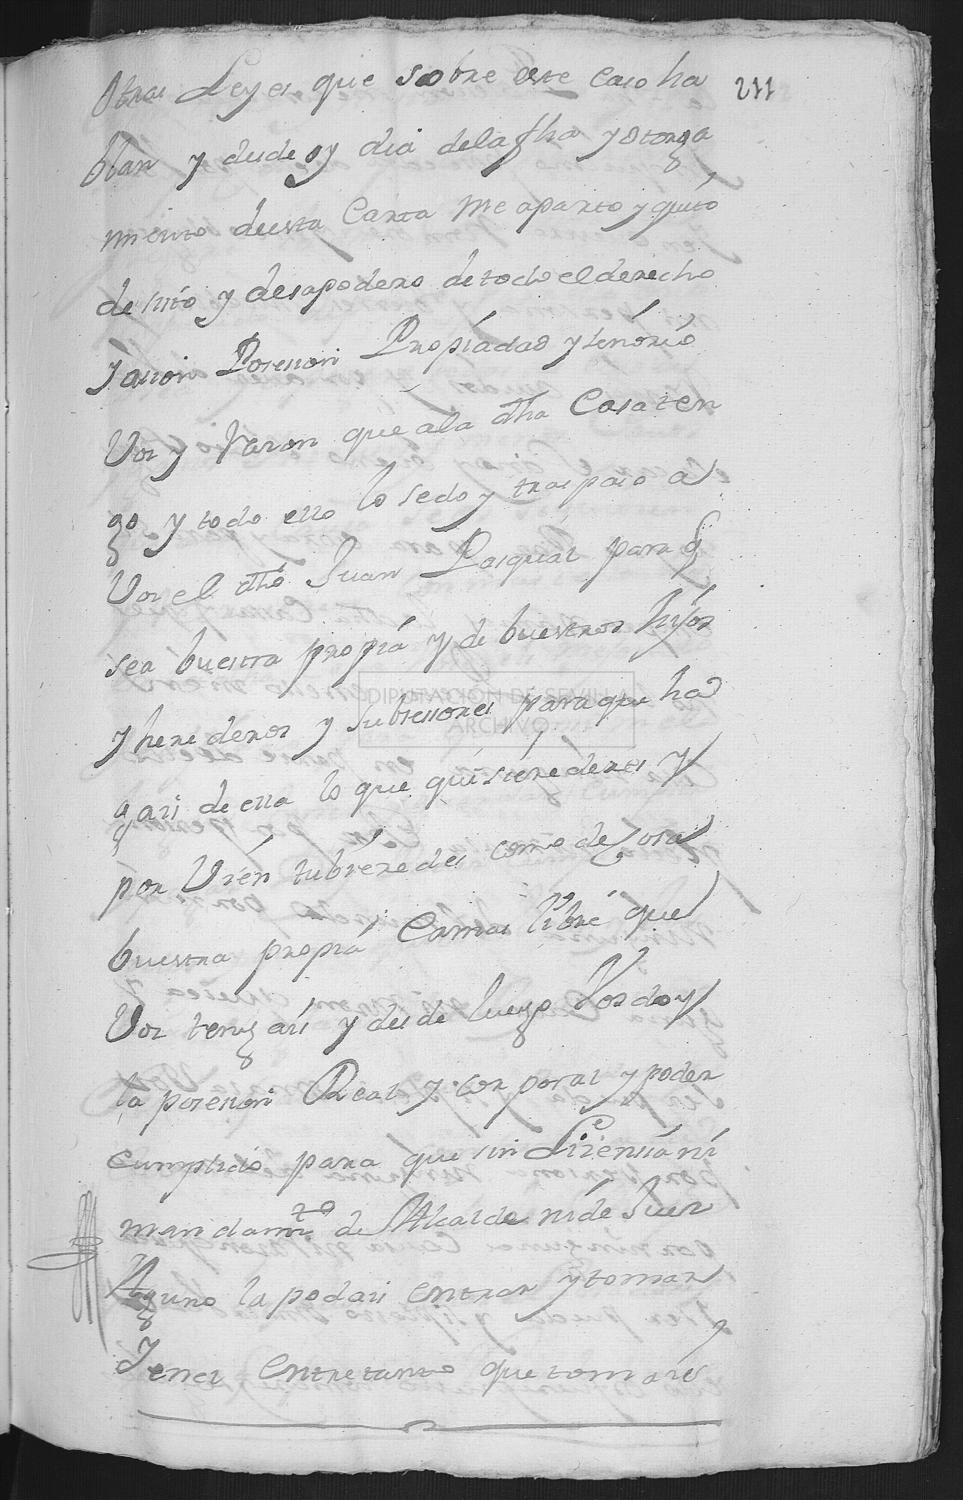 211
Otras Leyes que sobre este caso ha
blan y desde oy dia dela fha y otorga
miento desta Carta me aparto y quito
desisto y desapodero de todo el derecho
y asion Posesion Propiadad y señorio
Vos y Razon que a la dha Casa ten
go y todo ello lo sedo y traspaso a
Vos el dho Juan Pasqual para q
sea buestra propia y de buestros hijos
y herederos y subsesores para que ha
gais de ella lo que quisieredereis y
por Vien tubieredes como de Cosa
buestra propia Camas libre que
Vos tengais y desde luego Vos doy
la posesion Real y corporal y poder
cumplido para que sin Lisensia ni
mandamto de Alcalde ni de Juez
Alguno la podais entrar y tomar
Tener Entretanto que tomais
DIPUTACION DE SEVILLA
ARCHIVO